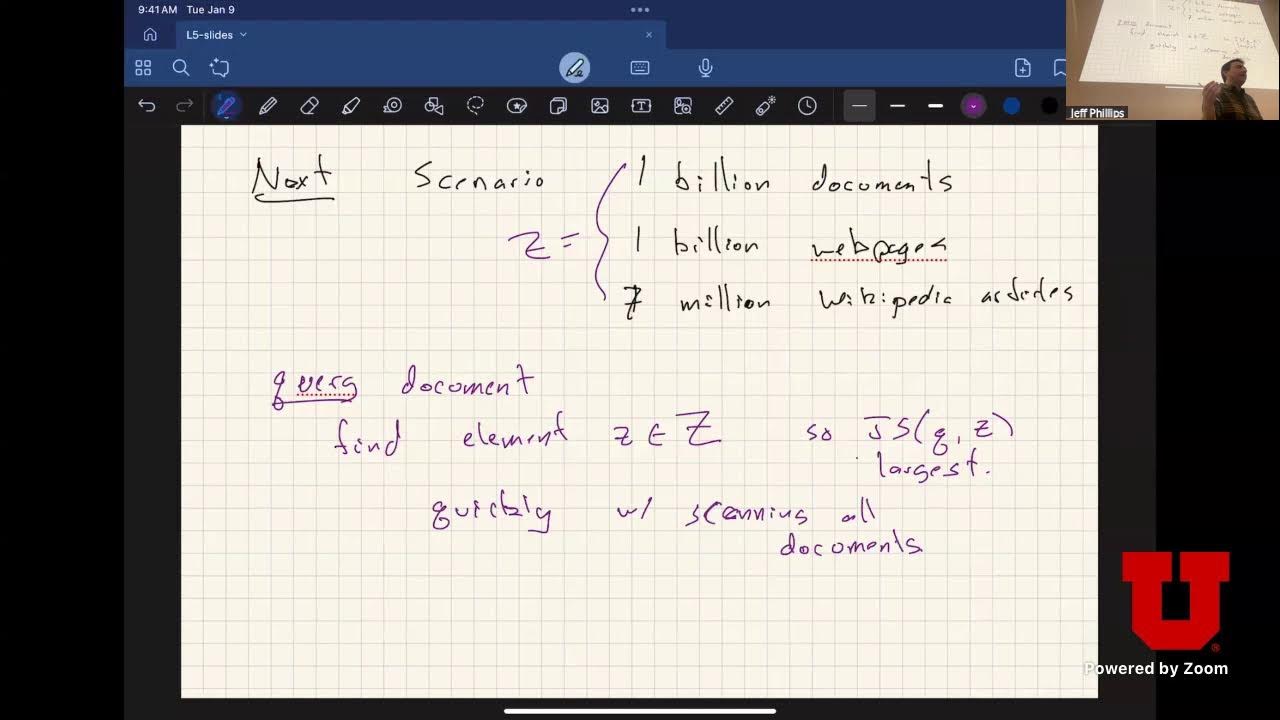 9:41 AM Tue Jan 9
L5-slides
Jeff Phillips
Next Scenario
1 billion documents
Z =
1 billion webpages
7 million Wikipedia articles
query document
find element z ∈ Z so JS(q, z)
largest.
quickly w/ scanning all
documents
U
Powered by Zoom